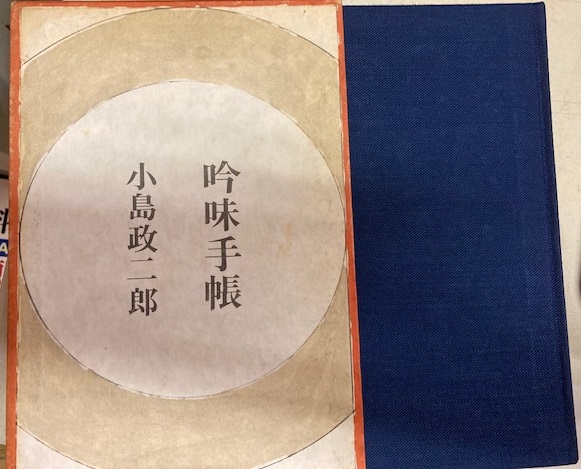 吟味手帳
小島政二郎